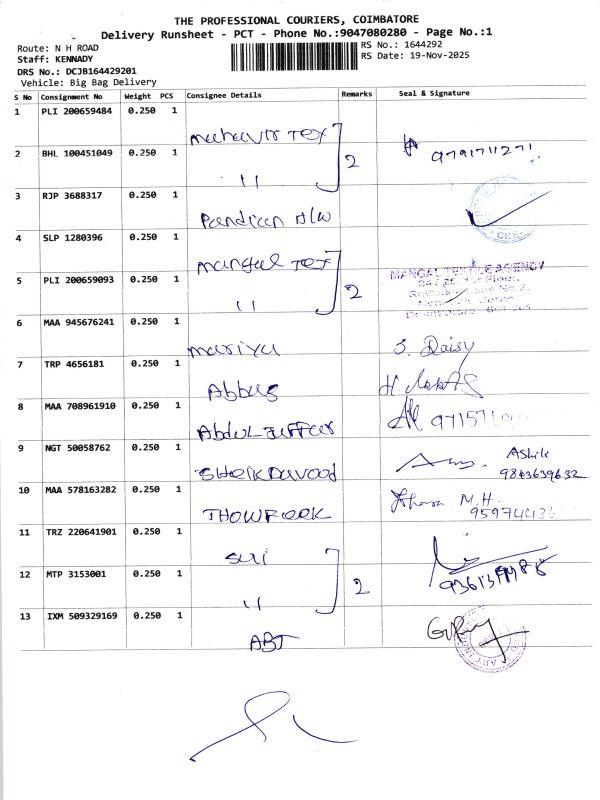 THE PROFESSIONAL COURIERS, COIMBATORE
Delivery Runsheet - PCT - Phone No.:9047080280 - Page No.:1
Route: N H ROAD
Staff: KENNADY
DRS No.: DCJB164429201
Vehicle: Big Bag Delivery
RS No.: 1644292
RS Date: 19-Nov-2025
S No Consignment No Weight PCS Consignee Details Remarks Seal & Signature
1 PLI 200659484 0.250 1 mahavir Tex 2 9791711271
2 BHL 100451049 0.250 1 "
3 RJP 3688317 0.250 1 Pandian H/W CBE
4 SLP 1280396 0.250 1 mangal Tex 2 MANGAL TEXTILE AGENCY
5 PLI 200659093 0.250 1 "
6 MAA 945676241 0.250 1 mariya S. Daisy
7 TRP 4656181 0.250 1 Abbas
8 MAA 708961910 0.250 1 Abdul Jaffar
9 NGT 50058762 0.250 1 Sheik Davood Ashik
9843639632
10 MAA 578163282 0.250 1 THOWFEEK M.H.
11 TRZ 220641901 0.250 1 Sri 2
12 MTP 3153001 0.250 1 "
13 IXM 509329169 0.250 1 ABT